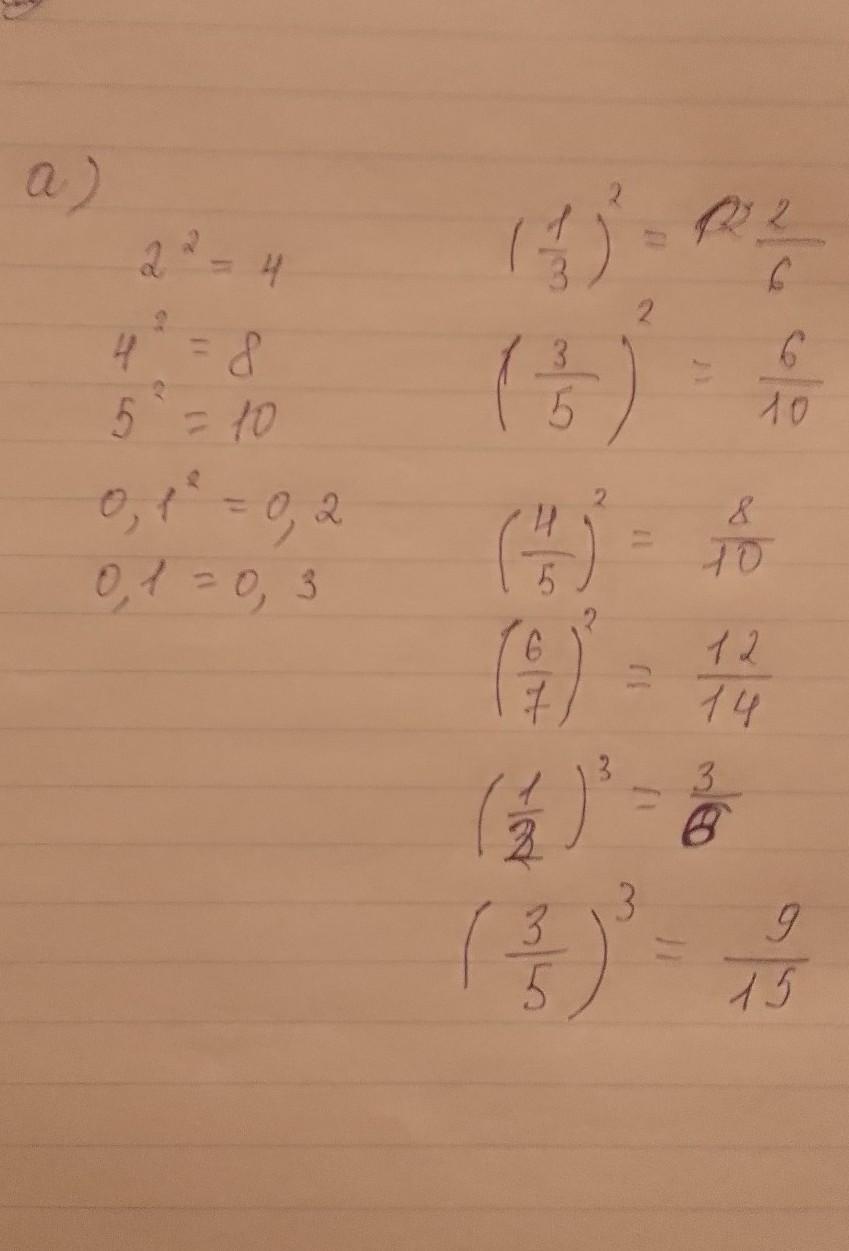 a)
2² = 4
4² = 8
5² = 10
0,1² = 0,2
0,1 = 0,3
(1/3)² = 2/6
(3/5)² = 6/10
(4/5)² = 8/10
(6/7)² = 12/14
(1/2)³ = 3/6
(3/5)³ = 9/15